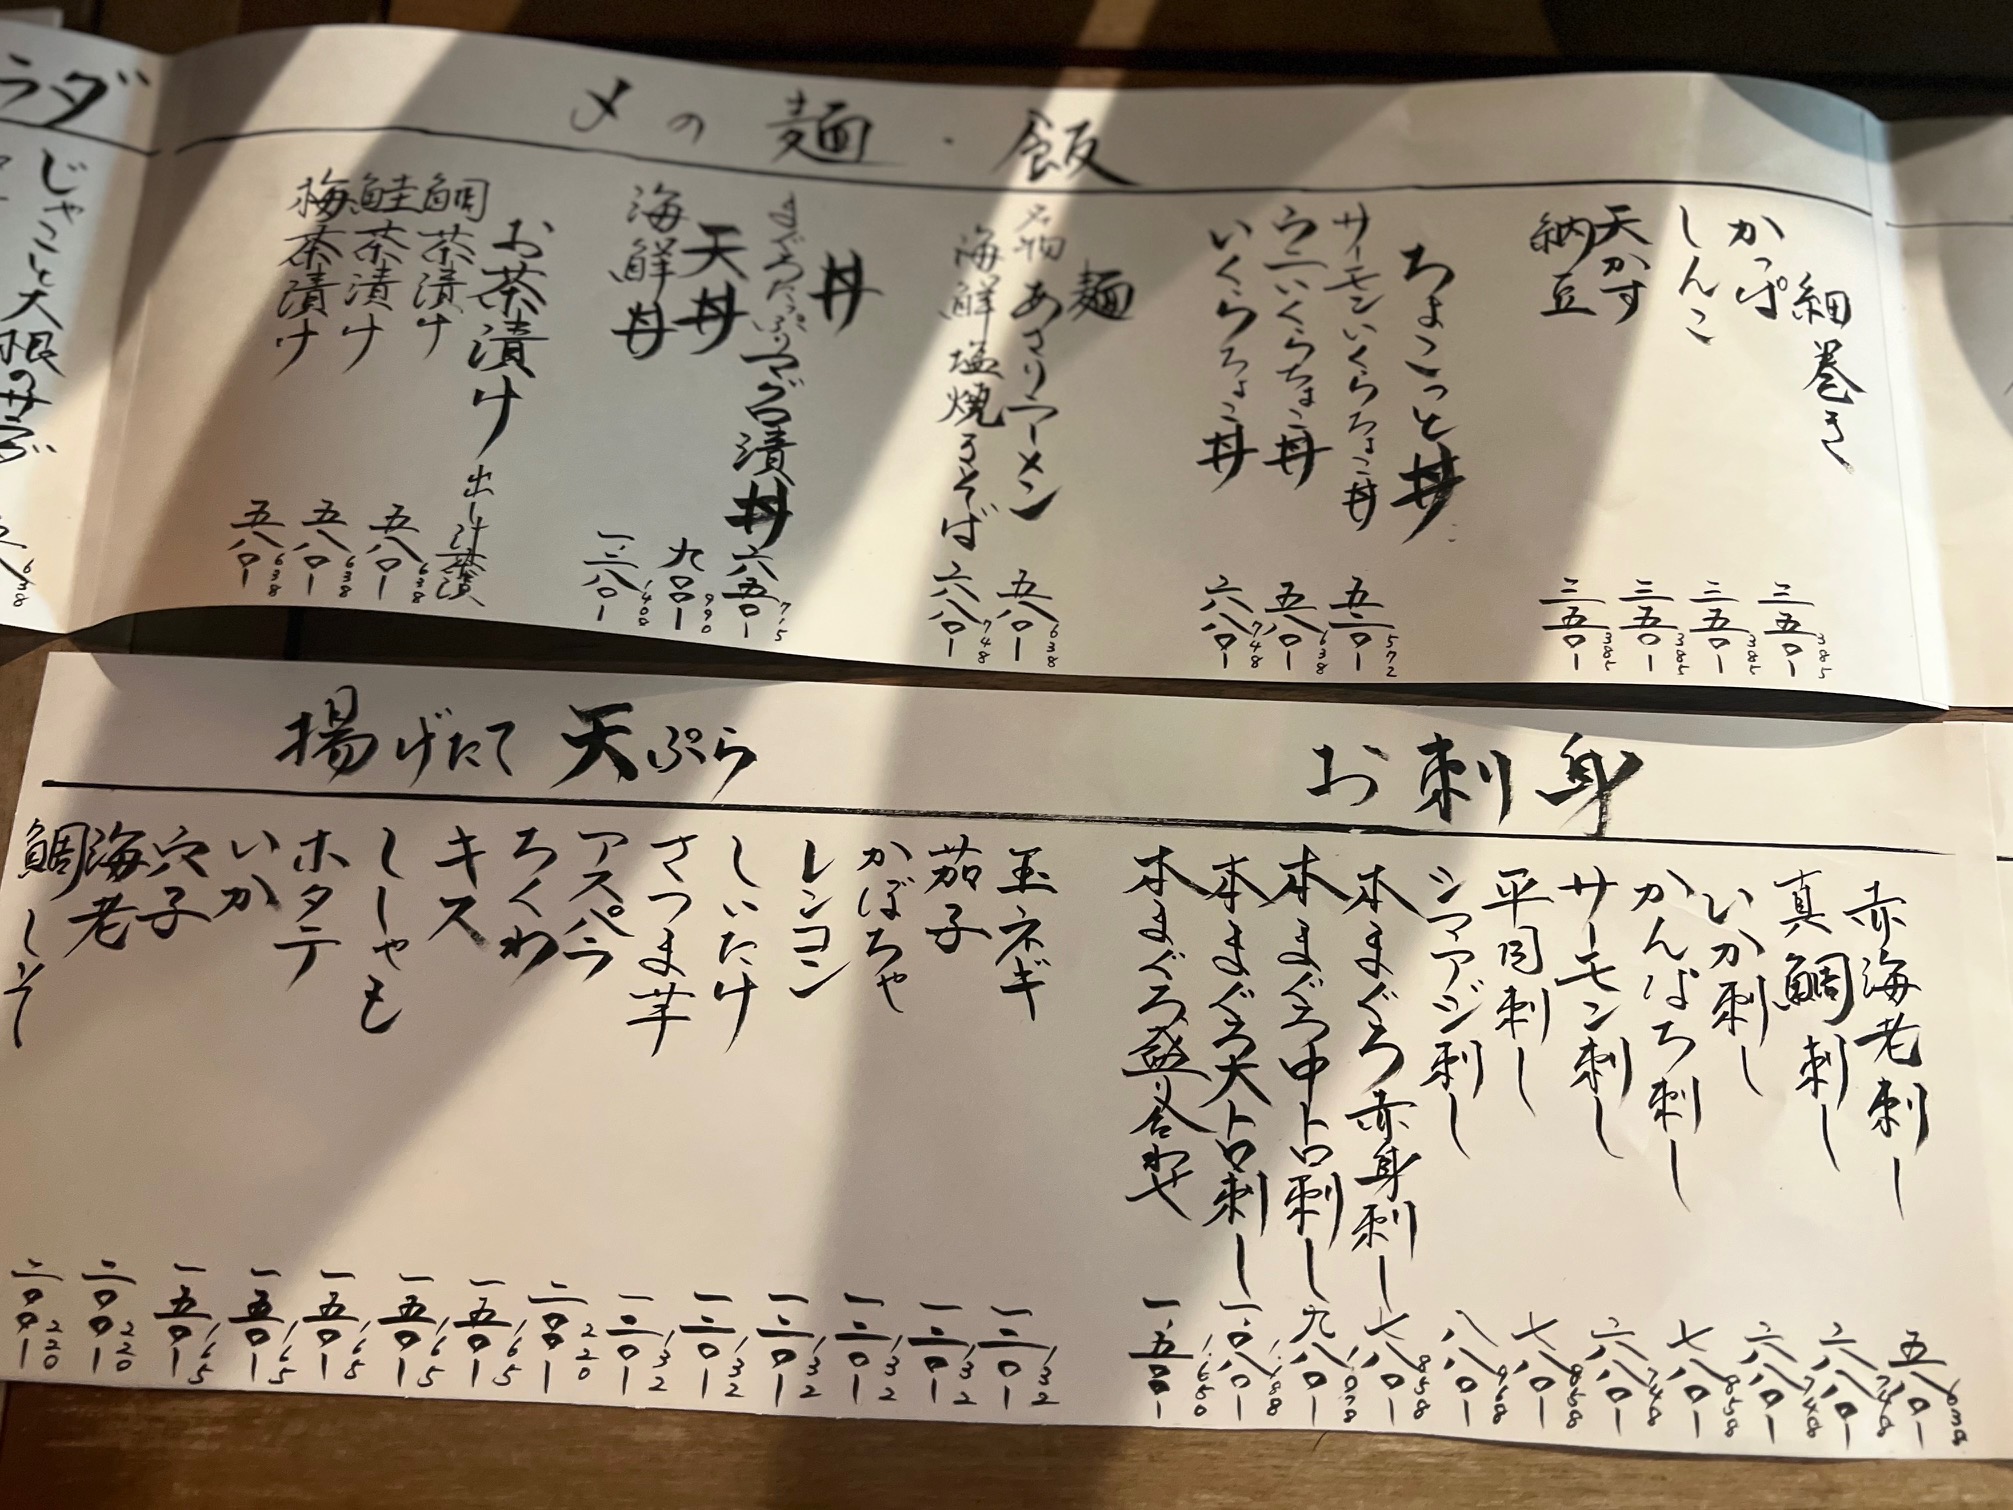 〆の麺・飯
細巻き
かっぱ 三五〇- 385
しんこ 三五〇- 385
天かす 三五〇- 385
納豆 三五〇- 385
ちょこっと丼
サーモンいくらちょこ丼 五二〇- 572
ウニいくらちょこ丼 五八〇- 638
いくらちょこ丼 六八〇- 748
麺
名物あさりラーメン 五八〇- 638
海鮮塩焼きそば 六八〇- 748
丼
まぐろたっぷりマグロ漬丼 六五〇- 715
天丼 九〇〇- 990
海鮮丼 一二八〇- 1408
お茶漬け 出し汁茶漬
鯛茶漬け 五八〇- 638
鮭茶漬け 五八〇- 638
梅茶漬け 五八〇- 638
ラダ
じゃこと大根のサラダ
638
お刺身
赤海老刺し 五八〇- 638
真鯛刺し 六八〇- 748
いか刺し 六八〇- 748
かんぱち刺し 七八〇- 858
サーモン刺し 六八〇- 748
平目刺し 七八〇- 858
シマアジ刺し 八八〇- 968
本まぐろ赤身刺し 七八〇- 858
本まぐろ中トロ刺し 九八〇- 1,078
本まぐろ大トロ刺し 一,〇八〇- 1,188
本まぐろ盛り合わせ 一,五〇〇- 1,650
揚げたて天ぷら
玉ネギ 一二〇- 132
茄子 一二〇- 132
かぼちゃ 一二〇- 132
レンコン 一二〇- 132
しいたけ 一二〇- 132
さつま芋 一二〇- 132
アスパラ 二〇〇- 220
ちくわ 一五〇- 165
キス 一五〇- 165
ししゃも 一五〇- 165
ホタテ 一五〇- 165
いか 一五〇- 165
穴子 二〇〇- 220
海老 二〇〇- 220
鯛しそ